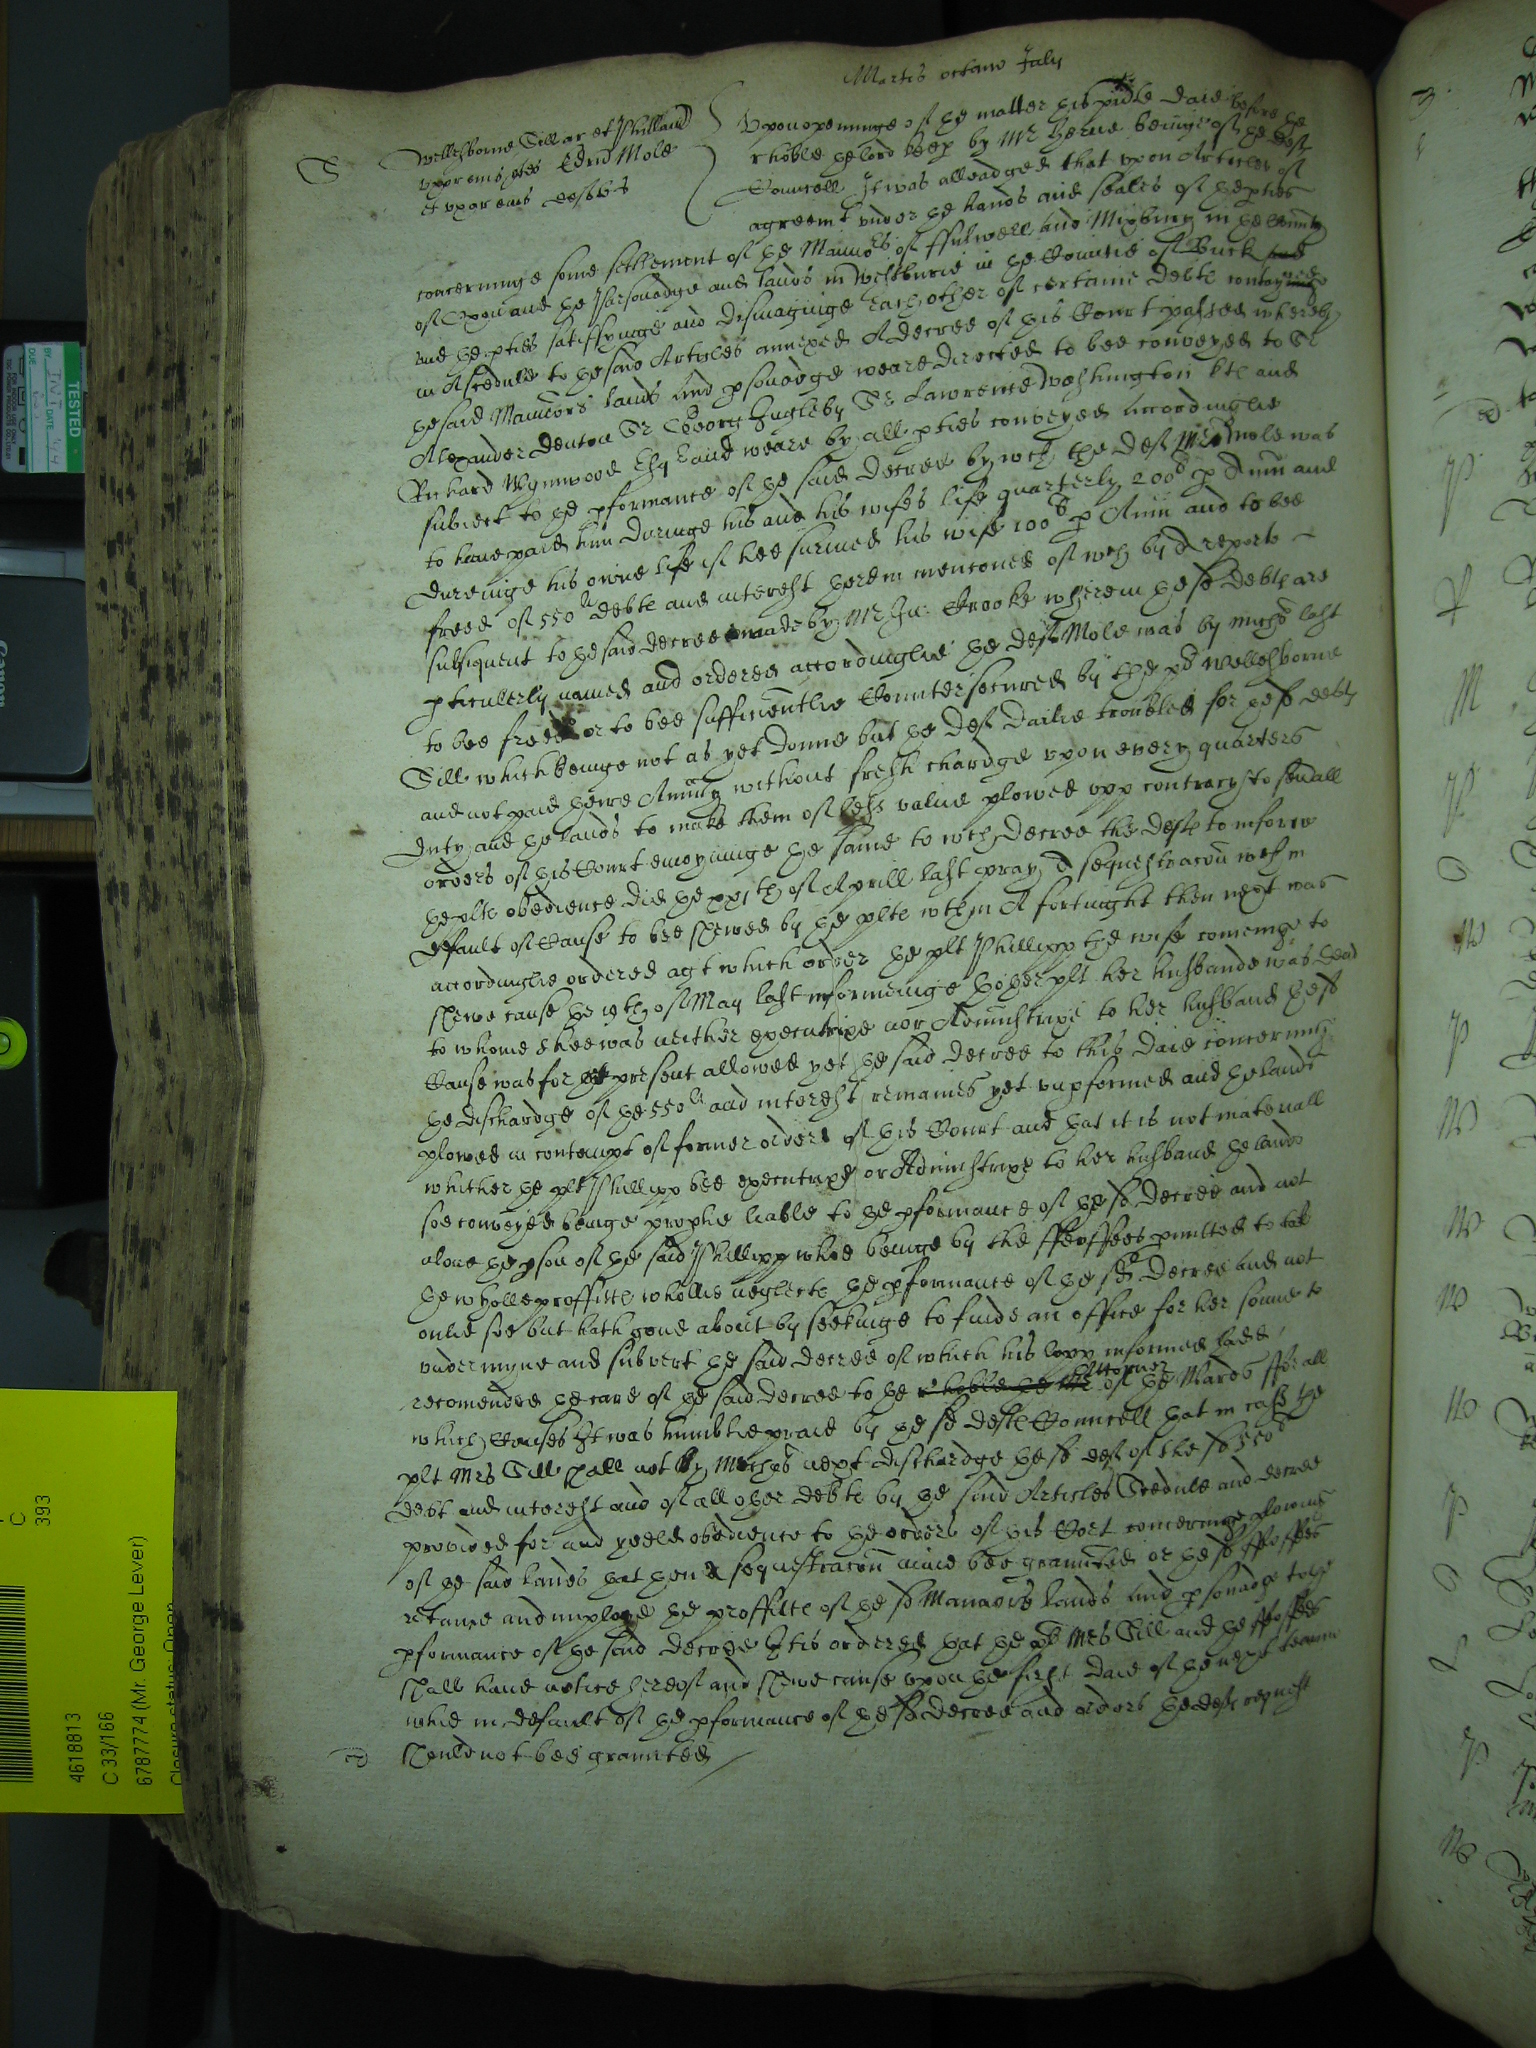 Martis octavo July
S
Wellesborne Sill ar et Phillipp
uxor eius ptes Edrus Mole
et uxor eius deftes
Upon openinge of the matter this pnte daie before the
r hoble the lord keep by Mr Herne beinge of the deftes
Councell It was alleadged that upon Articles of
agreemt under the hands and seales of the pties
concerninge some setlement of the Mannors of Fulwell and Mixbury in the County
of Oxon and the Parsonadge and lands in Westburie in the Countie of Buck
and the pties satisfyinge and dischaginge each other of certaine debte
in A scedule to the said Articles annexed A decree of this Court passed whereby
the said Mannors lands and psonadge weare directed to bee conveyed to Sr
Alexander Denton Sr Lawrence Washington kte and
Richard Wynwood Esq and weare by all pties conveyed accordinglie
subiect to the pformance of the said decree by wch the deft Mr Mole was
to have paid him duringe his and his wifes life quarterly 200li p Ann and
dureinge his owne life if hee survived his wife 100li p Ann and to bee
freed of 550li debte and interest therein mentoned of wch by A reporte
subsequent to the said decree made by Mr Jn: Crooke wherein these debtes are
pticulerly named and ordered accordinglie the deft Mole was by Michs last
to bee freed or to bee sufficientlie Countersecured by the pd Wellesborne
Sill which beinge not as yet donne but the deft dailie troubled for these debts
and not paid there Annuity without fresh chardge upon every quarters
duty and the lands to make them of less value plowed upp contrary to severall
orders of this Court enioyninge the same to wch decree the defte to inforce
the plte obedience did the xxjth of Aprill last pray A sequestracon wch in
default of Cause to bee shewed by the plte wthin A fortnight then next was
accordinglie ordered agt which order the plt Phillipp the wife cominge to
shewe cause the 19th of May last informeinge thother plt her husbande was dead
to whome shee was neither executrixe nor Administrixe to her husband
Cause was for the present allowed yet the said decree to this daie concerning
the dischardge of the 550li and interest remaines yet unpformed and the lands
plowed in contempt of former orders of this Court and that it is not materiall
whither the plt Phillipp bee executrixe or Administrixe to her husband the lands
soe conveyed beinge liable to the pformance of the sd decree and not
alone the pson of the said Phillipp whoe beinge by the ffeoffees pmitted to take
the wholle proffitte whollie neglecte the pformance of the sd decree and not
onlie soe but hath gone about by seekinge to finde an office for her sonne to
undermyne and subvert the said decree of which his lopp informed hath
recomended the care of the said decree to the Attorney of the Wards ffor all
which Causes It was humblie praid by the sd defte Councell that in case the
plt Mrs Sill shall not by Michs next dischardge the sd deft of the sd 550li
debt and interest and of all other debte by the said Articles Scedule and decree
provided for and yeeld obedience to the orders of this Cort concerninge plowing
of the said lands that then A sequestracon maie bee graunted or the sd ffeoffees
retaine and imploye the proffitte of the sd Mannors lands and psonadge to the
pformance of the said decree It is ordered that the pd Mrs Sill and the ffeoffees
shall have notice hereof and shewe cause upon the first daie of the next tearme
whie in default of the pformance of the sd decree and orders the defts request
should not bee graunted
TESTED
BY INT DATE
DUE
Canon
C
393
4618813
C 33/166
6787774 (Mr. George Lever)
Closure status: Open